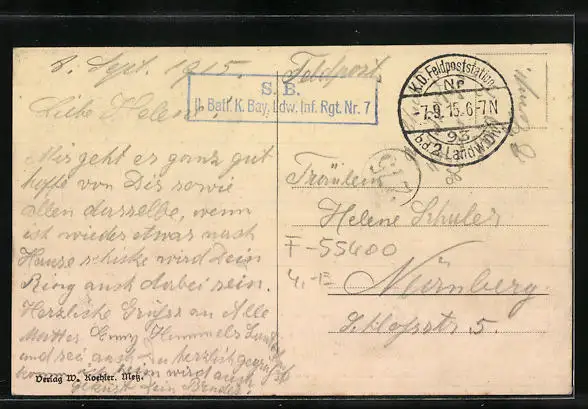 8. Sept. 1915. Feldpost
S. B.
II. Batl. K. Bay. Ldw. Inf. Rgt. Nr. 7
K.D. Feldpoststation
Nr
7.9. 15. 6-7 N
93
b.d. 2. Landw. Div.
Liebe Helene!
Mir geht es ganz gut
hoffe von Dir sowie
allen dasselbe, wenn
ist wieder etwas nach
Hause schike wird Dein
Ring auch dabei sein.
Herzliche Grüße an Alle
Mutter Emmy Himmels
und sei auch herzlich gegrüßt
wird auch
Dein Bruder.
Fräulein
Helene Schuler
F-55400
4,-E
Nürnberg
Schloßstr 5.
Verlag W. Koehler, Metz.